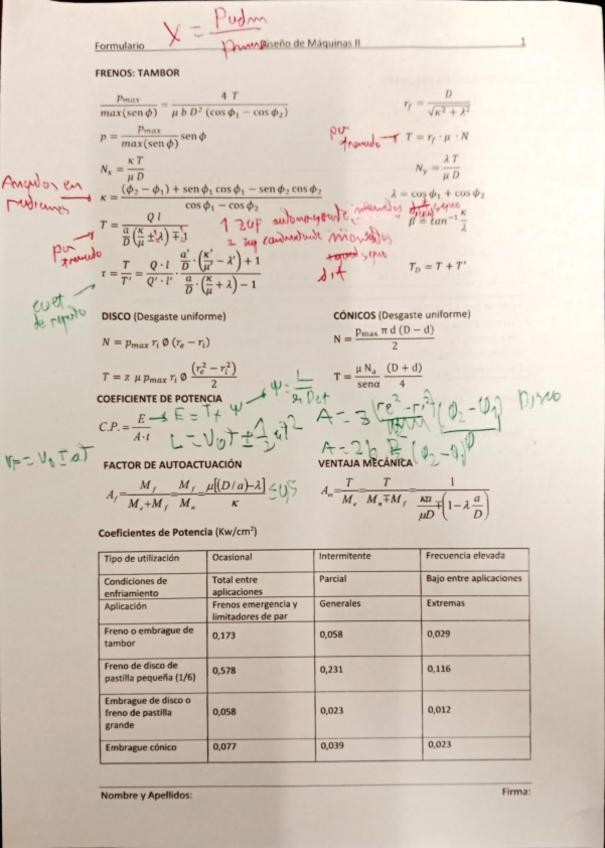 X = Padm / pmax
Formulario Diseño de Máquinas II 1
FRENOS: TAMBOR
p_max / max(sen ϕ) = 4 T / (μ b D² (cos ϕ₁ − cos ϕ₂)) r_f = D / √(κ² + λ²)
p = p_max / max(sen ϕ) sen ϕ por frenado → T = r_f · μ · N
N_x = κ T / (μ D) N_y = λ T / (μ D)
Angulos en radianes → κ = ((ϕ₂ − ϕ₁) + sen ϕ₁ cos ϕ₁ − sen ϕ₂ cos ϕ₂) / (cos ϕ₁ − cos ϕ₂) λ = cos ϕ₁ + cos ϕ₂
T = Q l / (a/D (κ/μ ± λ) ∓ 1) 1 zap β = tan⁻¹ κ/λ
por frenado 2 zap
τ = T/T' = Q · l / (Q' · l') · (a'/D · (κ'/μ' − λ') + 1) / (a/D · (κ/μ + λ) − 1) T_D = T + T'
coef de reparto
DISCO (Desgaste uniforme) CÓNICOS (Desgaste uniforme)
N = p_max r_i Ø (r_e − r_i) N = p_max π d (D − d) / 2
T = z μ p_max r_i Ø (r_e² − r_i²) / 2 T = μ N_a / senα (D + d) / 4
COEFICIENTE DE POTENCIA
C.P. = E / (A · t) → E = T · ψ → ψ = L /
L = V₀T ± 1/2 aT² Disco
V_F = V₀ ± aT
FACTOR DE AUTOACTUACIÓN VENTAJA MECÁNICA
A_f = M_f / (M_e + M_f) = M_f / M_n = μ[(D/a) − λ] / κ
A_m = T / M_e = T / (M_n ∓ M_f) = 1 / (κa/μD ∓ (1 − λ a/D))
Coeficientes de Potencia (Kw/cm²)
Tipo de utilización Ocasional Intermitente Frecuencia elevada
Condiciones de enfriamiento Total entre aplicaciones Parcial Bajo entre aplicaciones
Aplicación Frenos emergencia y limitadores de par Generales Extremas
Freno o embrague de tambor 0,173 0,058 0,029
Freno de disco de pastilla pequeña (1/6) 0,578 0,231 0,116
Embrague de disco o freno de pastilla grande 0,058 0,023 0,012
Embrague cónico 0,077 0,039 0,023
Nombre y Apellidos: Firma: